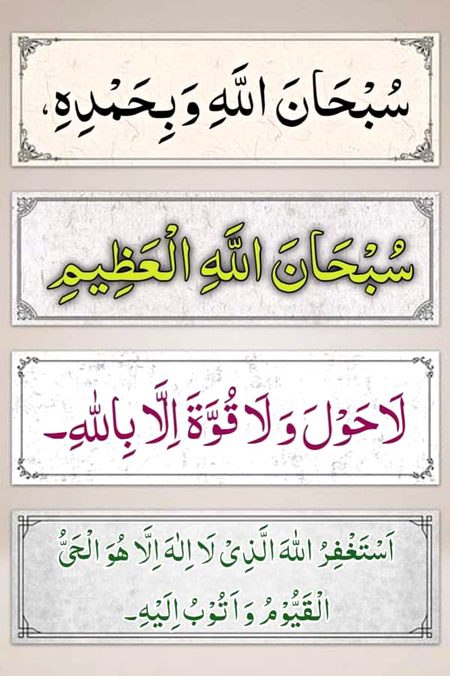 سُبْحَانَ اللَّهِ وَبِحَمْدِهِ،
سُبْحَانَ اللَّهِ الْعَظِيمِ
لَا حَوْلَ وَلَا قُوَّةَ اِلَّا بِاللّٰهِ۔
اَسْتَغْفِرُ اللّٰهَ الَّذِیْ لَا اِلٰهَ اِلَّا هُوَ الْحَیُّ
الْقَیُّوْمُ وَ اَتُوْبُ اِلَیْهِ۔